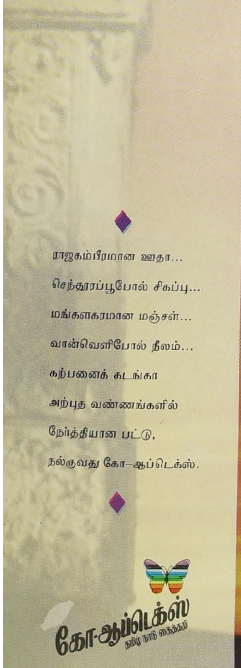 ராஜகம்பீரமான ஊதா...
செந்தூரப்பூபோல் சிகப்பு...
மங்களகரமான மஞ்சள்...
வான்வெளிபோல் நீலம்...
கற்பனைக் கடங்கா
அற்புத வண்ணங்களில்
நேர்த்தியான பட்டு,
நல்குவது கோ-ஆப்டெக்ஸ்.
கோ-ஆப்டெக்ஸ்
தமிழ் நாடு கைத்தறி